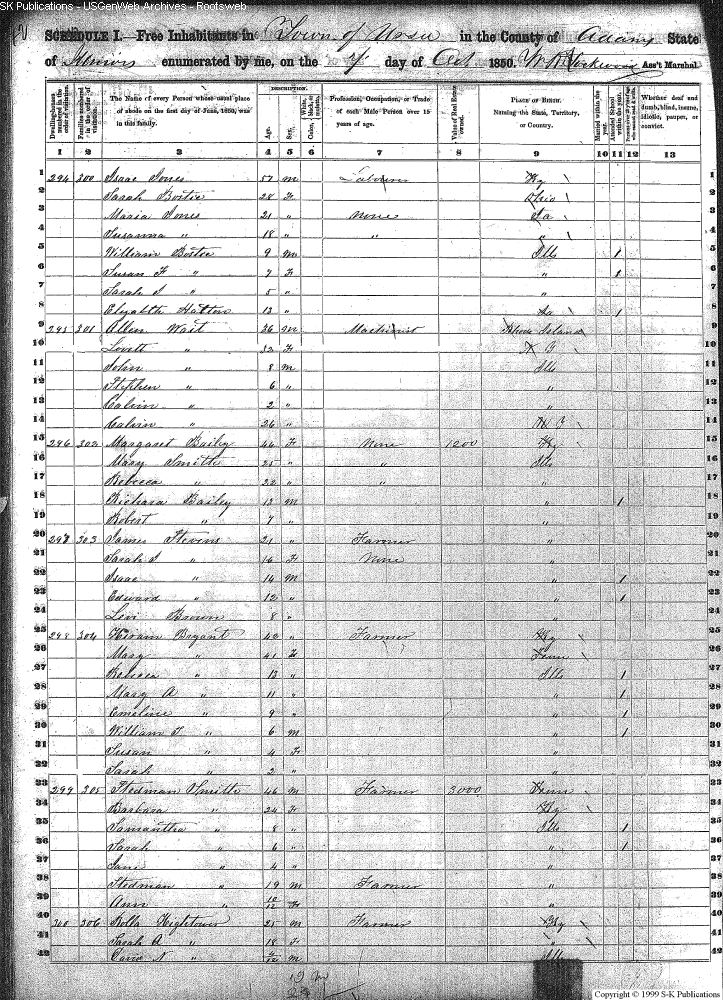 SK Publications - USGenWeb Archives - Rootsweb
SCHEDULE I.—Free Inhabitants in Town of Ursa in the County of Adams State
of Illinois enumerated by me, on the 7 day of Oct 1850. Ass't Marshal.
Dwelling-houses numbered in the order of visitation.
Families numbered in the order of visitation.
The Name of every Person whose usual place of abode on the first day of June, 1850, was in this family.
DESCRIPTION.
Age.
Sex.
Color, White, black, or mulatto.
Profession, Occupation, or Trade of each Male Person over 15 years of age.
Value of Real Estate owned.
PLACE OF BIRTH. Naming the State, Territory, or Country.
Married within the year.
Attended School within the year.
Whether deaf and dumb, blind, insane, idiotic, pauper, or convict.
1 2 3 4 5 6 7 8 9 10 11 12 13
1 294 300 Isaac Jones 57 m Laborer Ky 1
2 Sarah Bostic 28 F Ohio 2
3 Maria Jones 21 " None Ia 3
4 Susanna " 18 " " " 4
5 William Bostic 9 m Ills 1 5
6 Susan F " 7 F " 1 6
7 Sarah J " 5 " " 7
8 Elizabeth Hatton 13 " Ia 1 8
9 295 301 Allen Wait 36 m Machinist Rhode Island 9
10 Lovett " 32 F N C 10
11 John " 8 m Ills 11
12 Stephen " 6 " " 12
13 Calvin " 2 " " 13
14 Calvin " 26 " N C 14
15 296 302 Margaret Bailey 44 F None 1200 Ky 15
16 Mary Smith 25 " " Ills 16
17 Rebecca " 22 " " " 17
18 Richard Bailey 13 m " 1 18
19 Robert " 7 " " 19
20 297 303 James Stevens 21 " Farmer " 20
21 Sarah J " 16 F None " 21
22 Isaac " 14 m " 1 22
23 Edward " 12 " " 1 23
24 Levi Brown 8 " " 24
25 298 304 Hiram Bryant 42 " Farmer Ky 25
26 Mary " 41 F Tenn 26
27 Rebecca " 13 " Ills 1 27
28 Mary A " 11 " " 1 28
29 Emeline " 9 " " 1 29
30 William T " 6 m " 1 30
31 Susan " 4 F " 31
32 Sarah " 2 " " 32
33 299 305 Stedman Smith 46 m Farmer 3000 Tenn 33
34 Barbara " 24 F Ky 34
35 Samantha " 8 " Ills 1 35
36 Sarah " 6 " " 1 36
37 Jane " 4 " " 37
38 Stedman " 19 m Farmer " 38
39 Ann " 10/12 F " 39
40 300 306 Rolla Hightower 25 m Farmer Ky 40
41 Sarah A " 18 F " 41
42 David N " m Ills 42
19 m
Copyright © 1999 S-K Publications